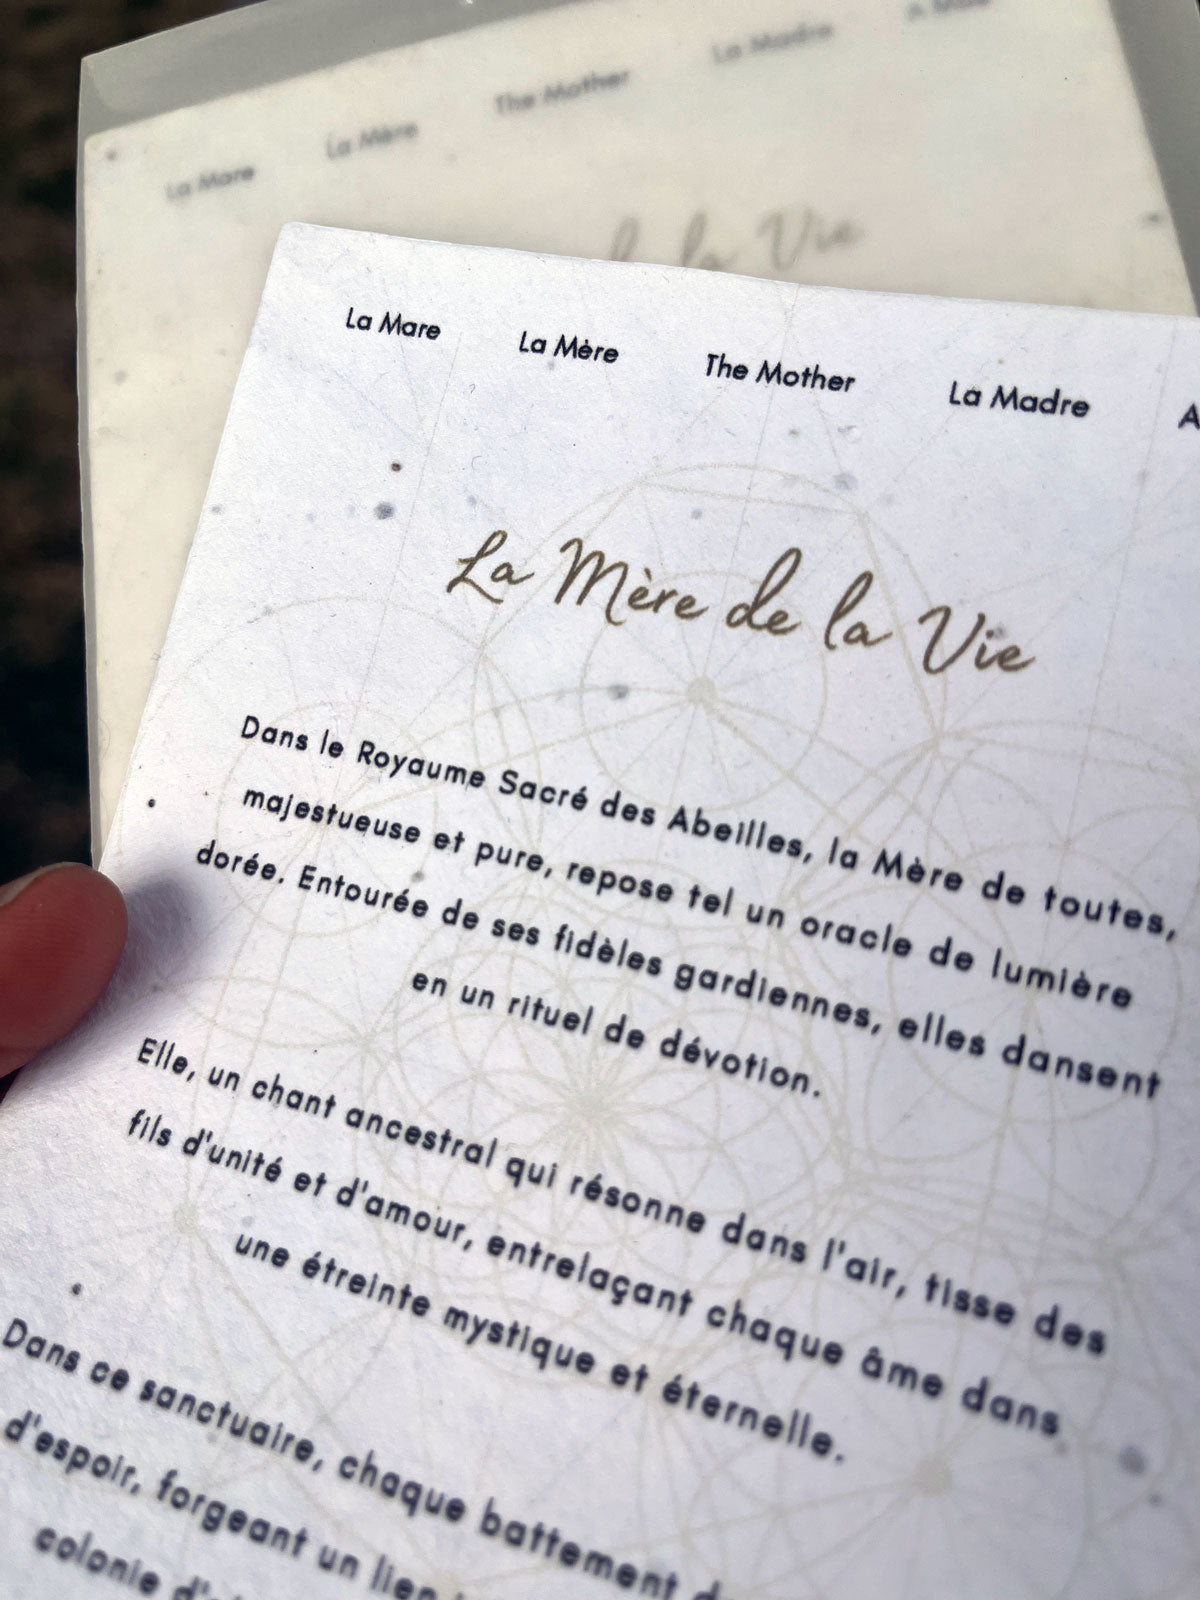 La Mare La Mère The Mother La Madre
de la Vie
La Mare La Mère The Mother La Madre A
La Mère de la Vie
Dans le Royaume Sacré des Abeilles, la Mère de toutes,
majestueuse et pure, repose tel un oracle de lumière
dorée. Entourée de ses fidèles gardiennes, elles dansent
en un rituel de dévotion.
Elle, un chant ancestral qui résonne dans l'air, tisse des
fils d'unité et d'amour, entrelaçant chaque âme dans
une étreinte mystique et éternelle.
Dans ce sanctuaire, chaque battement
d'espoir, forgeant un lien
colonie